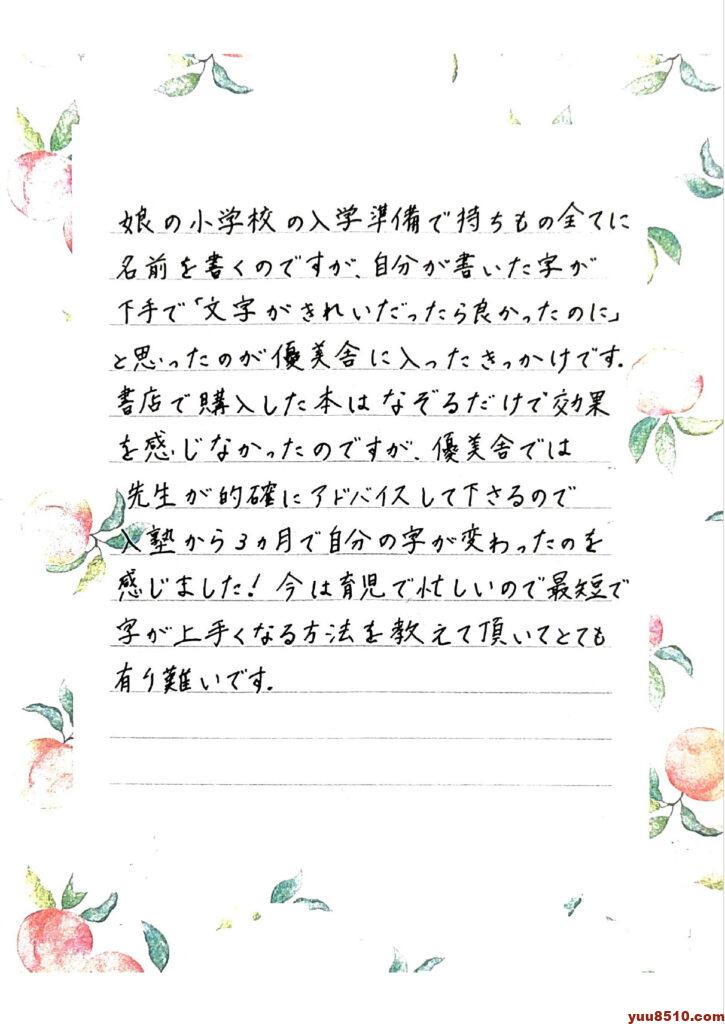 娘の小学校の入学準備で持ちもの全てに
名前を書くのですが、自分が書いた字が
下手で「文字がきれいだったら良かったのに」
と思ったのが優美舎に入ったきっかけです.
書店で購入した本はなぞるだけで効果
を感じなかったのですが、優美舎では
先生が的確にアドバイスして下さるので
入塾から3ヵ月で自分の字が変わったのを
感じました!今は育児で忙しいので最短で
字が上手くなる方法を教えて頂いてとても
有り難いです.
yuu8510.com